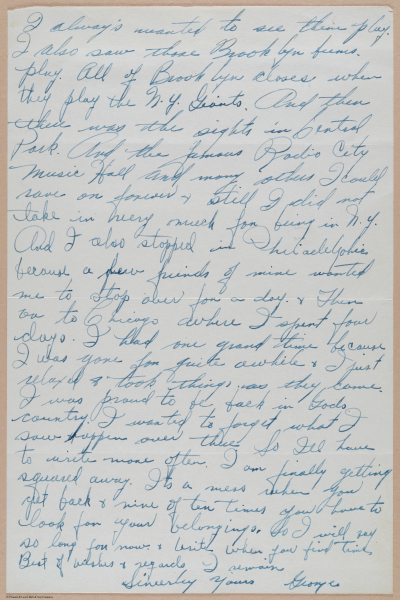 I always wanted to see them play.
I also saw those Brooklyn bums
play. All of Brooklyn closes when
they play the N.Y. Giants. And then
there was the sights in Central
Park. And the famous Radio City
Music Hall and many others I could
rave on forever & still I did not
take in very much for being in N.Y.
And I also stopped in Philadelphia
because a few friends of mine wanted
me to stop over for a day. & Then
to Chicago where I spent four
days. I had one grand time because
I was gone for quite awhile & I just
relaxed & took things as they came.
I was proud to be back in Gods
country. I wanted to forget what I
saw happen over there. So Ill have
to write more often. I am finally getting
squared away. Its a mess when you
get back & nine of ten times you have to
look for your belongings. So I will say
so long for now. & write when you find time
Best of wishes & regards, I remain
Sincerley Yours George